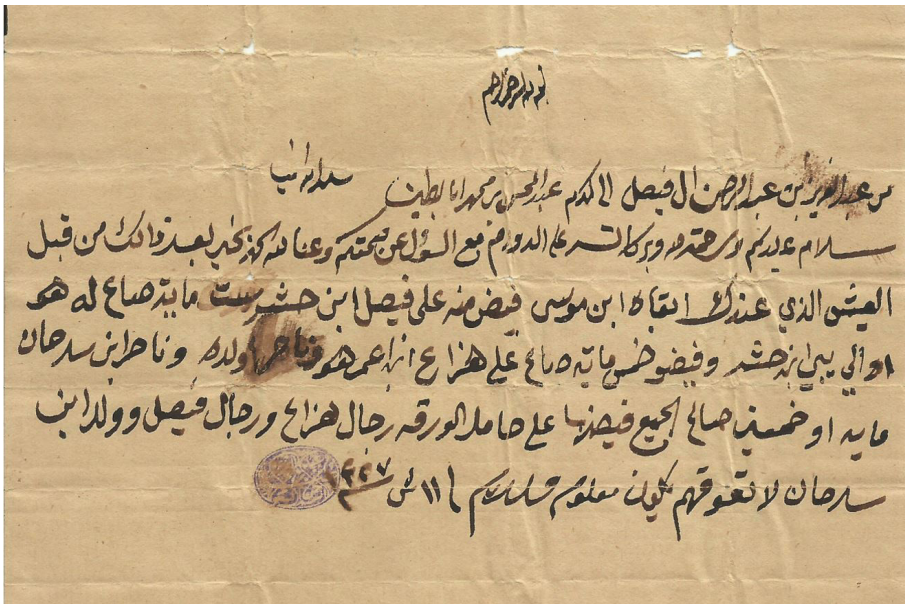 بسم الله الرحمن الرحيم
من عبد العزيز بن عبد الرحمن ال فيصل الى المكرم عبد المحسن بن محمد ابا بطين سلمه الله
سلام عليكم ورحمة الله وبركاته على الدوام مع السؤل عن صحتكم وعنا لله الحمد بخير بعد ذالك من قبل
العيش الذي عندك ابقاه ابن موسى فيض منه على فيصل ابن حشر ست ماية صاع له هو
او الي يبي ابن حشر وفيضو خمس ماية صاع على هزاع ابن عمر هو وناصر اولده وناصر ابن سدحان
مايه او خمسين صاع الجميع فيضها على حامل الورقه رجال هزاع ورجال فيصل وولد ابن
سدحان لا تعوقهم يكون معلوم والسلام ١١ ش ١٣٢٧